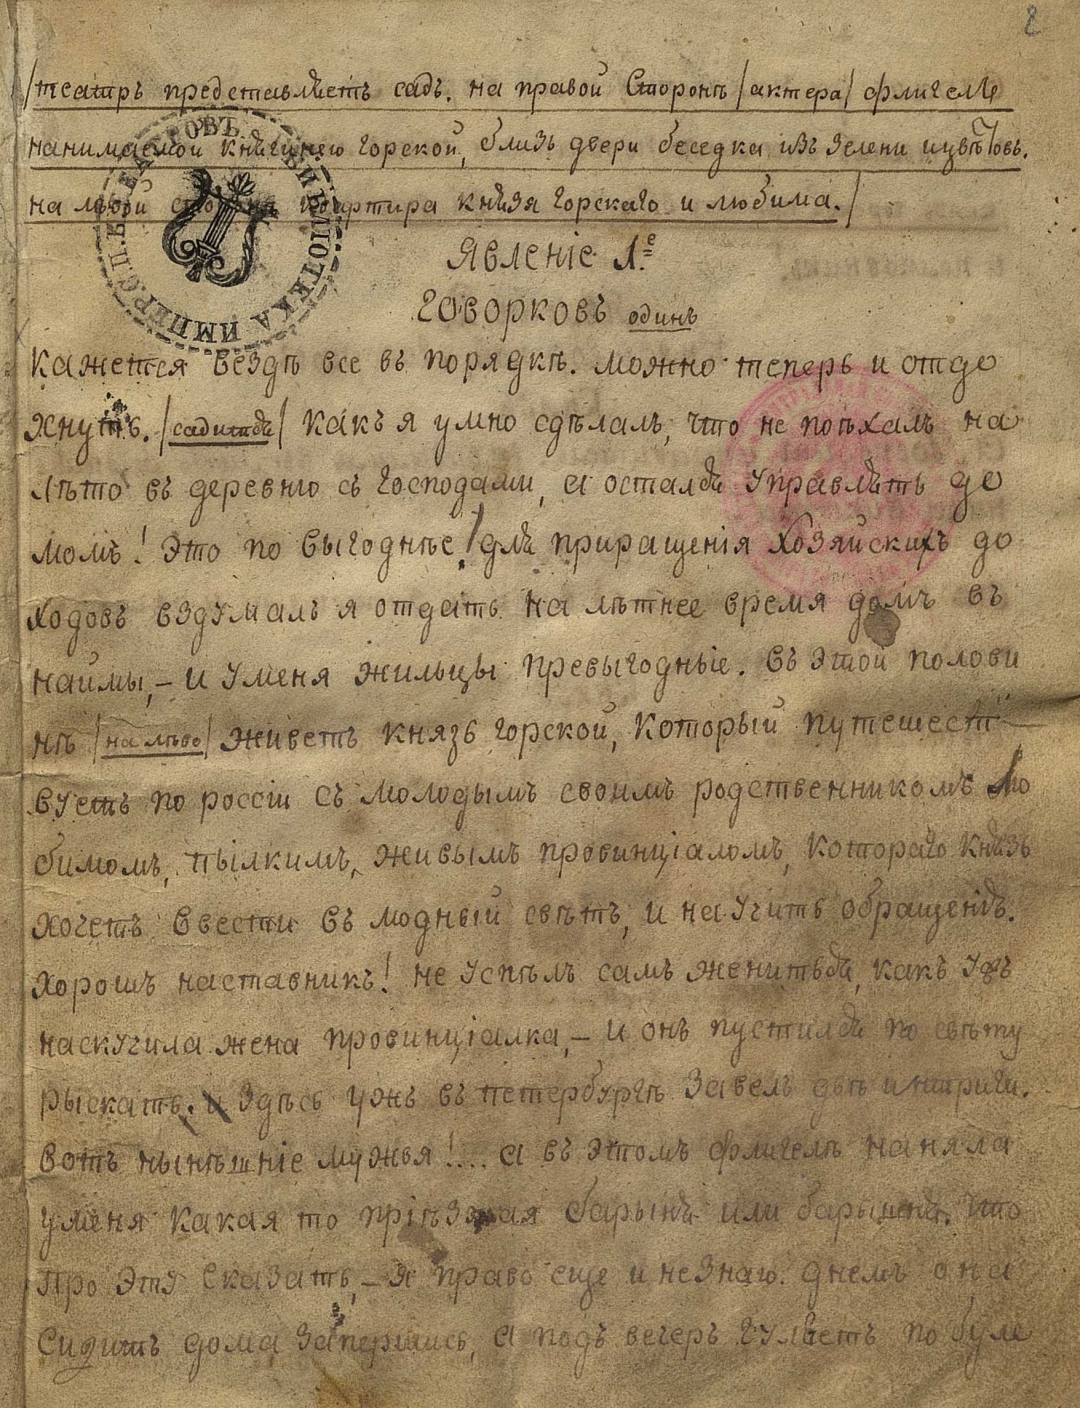 2
/театръ представляетъ садъ. на правой Сторонѣ /актера/ флигель
нанимаемой княгинею горской, близь двери беседка изъ зелени и цвѣтовъ.
на лѣвой сторонѣ квартира князя горскаго и любима./
Явленіе 1.е
Говорковъ одинъ
Кажется вездѣ все въ порядкѣ. можно теперь и отдо
хнуть. /садится/ какъ я умно сдѣлалъ, что не поѣхалъ на
лѣто въ деревню съ господами, а остался управлять до
момъ! Это по выгоднѣе! для приращенія хозяйскихъ до
ходовъ вздумалъ я отдать на лѣтнее время домъ въ
наймы, – и уменя жильцы превыгодные. въ этой полови
нѣ /на лѣво/ живетъ князь горской, который путешест
вуетъ по россіи съ молодымъ своимъ родственникомъ лю
бимомъ, пылкимъ, живымъ провинціаломъ, котораго князь
хочетъ ввести въ модный свѣтъ, и научить обращенія.
хорошъ наставникъ! не успѣлъ самъ жениться, какъ ужъ
наскучила жена провинціалка, – и онъ пустился по свѣту
рыскать. и здѣсь ужъ въ петербургѣ завелъ двѣ интриги.
вотъ нынѣшніе мужья!.... а въ этомъ флигелѣ наняла
уменя какая то пріѣзжая барыня или барышня. что
про это сказать, – я право еще и незнаю. днемъ она
сидитъ дома запершись, а подъ вечеръ гуляетъ по буле
БИБЛИОТЕКА ИМПЕР. С.П.Б. ТЕАТРОВЪ